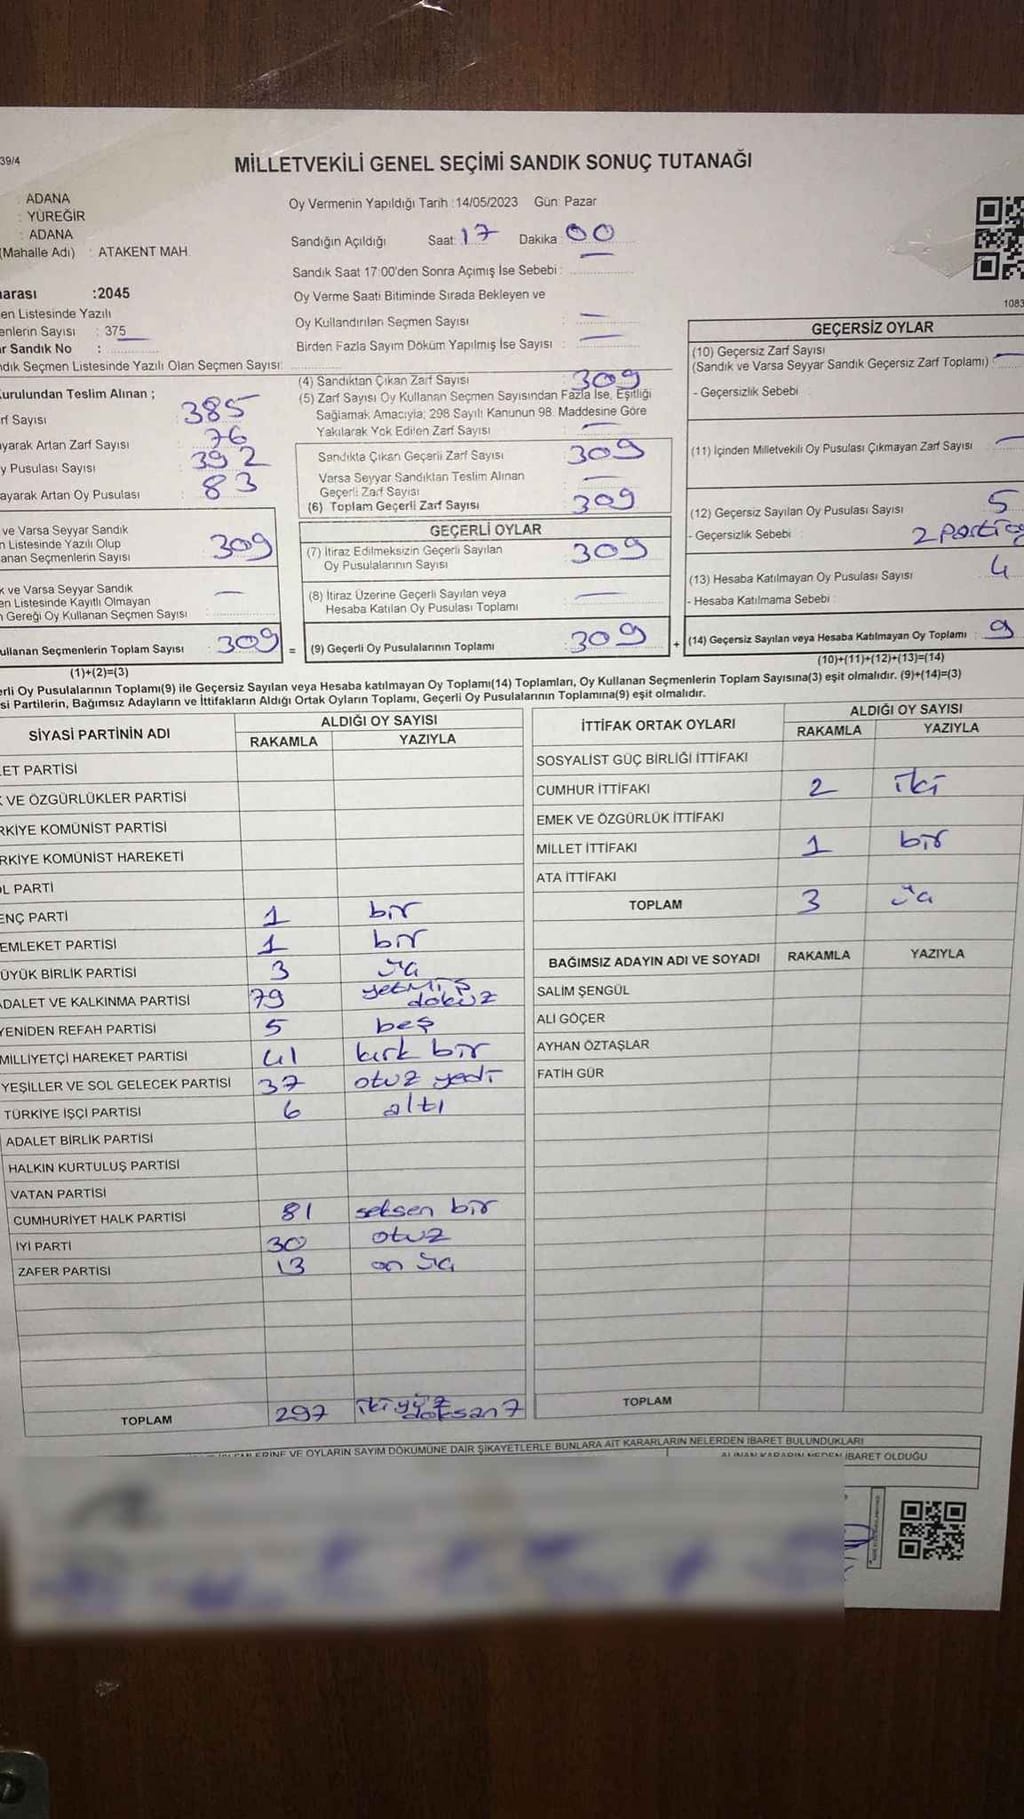 39/4
MİLLETVEKİLİ GENEL SEÇİMİ SANDIK SONUÇ TUTANAĞI
: ADANA
: YÜREĞİR
: ADANA
(Mahalle Adı) : ATAKENT MAH.
arası :2045
en Listesinde Yazılı
enlerin Sayısı : 375
r Sandık No :
dık Seçmen Listesinde Yazılı Olan Seçmen Sayısı:
Oy Vermenin Yapıldığı Tarih :14/05/2023 Gün: Pazar
Sandığın Açıldığı Saat: 17 Dakika: 00
Sandık Saat 17:00'den Sonra Açımış İse Sebebi :
Oy Verme Saati Bitiminde Sırada Bekleyen ve
Oy Kullandırılan Seçmen Sayısı : —
Birden Fazla Sayım Döküm Yapılmış İse Sayısı : —
1083
urulundan Teslim Alınan ;
rf Sayısı 385
yarak Artan Zarf Sayısı 76
y Pusulası Sayısı 392
ayarak Artan Oy Pusulası : 83
ve Varsa Seyyar Sandık
n Listesinde Yazılı Olup
anan Seçmenlerin Sayısı : 309
k ve Varsa Seyyar Sandık
en Listesinde Kayıtlı Olmayan
n Gereği Oy Kullanan Seçmen Sayısı : —
ullanan Seçmenlerin Toplam Sayısı : 309
(1)+(2)=(3)
(4) Sandıktan Çıkan Zarf Sayısı : 309
(5) Zarf Sayısı Oy Kullanan Seçmen Sayısından Fazla İse, Eşitliği
Sağlamak Amacıyla; 298 Sayılı Kanunun 98. Maddesine Göre
Yakılarak Yok Edilen Zarf Sayısı : —
Sandıkta Çıkan Geçerli Zarf Sayısı : 309
Varsa Seyyar Sandıktan Teslim Alınan
Geçerli Zarf Sayısı : —
(6) Toplam Geçerli Zarf Sayısı : 309
GEÇERLİ OYLAR
(7) İtiraz Edilmeksizin Geçerli Sayılan
Oy Pusulalarının Sayısı : 309
(8) İtiraz Üzerine Geçerli Sayılan veya
Hesaba Katılan Oy Pusulası Toplamı : —
= (9) Geçerli Oy Pusulalarının Toplamı : 309 +
GEÇERSİZ OYLAR
(10) Geçersiz Zarf Sayısı
(Sandık ve Varsa Seyyar Sandık Geçersiz Zarf Toplamı) : —
- Geçersizlik Sebebi :
(11) İçinden Milletvekili Oy Pusulası Çıkmayan Zarf Sayısı : —
(12) Geçersiz Sayılan Oy Pusulası Sayısı : 5
- Geçersizlik Sebebi : 2 partiy
(13) Hesaba Katılmayan Oy Pusulası Sayısı : 4
- Hesaba Katılmama Sebebi :
(14) Geçersiz Sayılan veya Hesaba Katılmayan Oy Toplamı : 9
(10)+(11)+(12)+(13)=(14)
erli Oy Pusulalarının Toplamı(9) ile Geçersiz Sayılan veya Hesaba katılmayan Oy Toplamı(14) Toplamları, Oy Kullanan Seçmenlerin Toplam Sayısına(3) eşit olmalıdır. (9)+(14)=(3)
si Partilerin, Bağımsız Adayların ve İttifakların Aldığı Ortak Oyların Toplamı, Geçerli Oy Pusulalarının Toplamına(9) eşit olmalıdır.
SİYASİ PARTİNİN ADI ALDIĞI OY SAYISI
RAKAMLA YAZIYLA
LET PARTİSİ
K VE ÖZGÜRLÜKLER PARTİSİ
RKİYE KOMÜNİST PARTİSİ
RKİYE KOMÜNİST HAREKETİ
OL PARTİ
ENÇ PARTİ 1 bir
EMLEKET PARTİSİ 1 bir
ÜYÜK BİRLİK PARTİSİ 3 üç
ADALET VE KALKINMA PARTİSİ 79 yetmiş dokuz
YENİDEN REFAH PARTİSİ 5 beş
MİLLİYETÇİ HAREKET PARTİSİ 41 kırk bir
YEŞİLLER VE SOL GELECEK PARTİSİ 37 otuz yedi
TÜRKİYE İŞÇİ PARTİSİ 6 altı
ADALET BİRLİK PARTİSİ
HALKIN KURTULUŞ PARTİSİ
VATAN PARTİSİ
CUMHURİYET HALK PARTİSİ 81 seksen bir
İYİ PARTİ 30 otuz
ZAFER PARTİSİ 13 on üç
TOPLAM 297 ikiyüz doksan 7
İTTİFAK ORTAK OYLARI ALDIĞI OY SAYISI
RAKAMLA YAZIYLA
SOSYALİST GÜÇ BİRLİĞİ İTTİFAKI
CUMHUR İTTİFAKI 2 iki
EMEK VE ÖZGÜRLÜK İTTİFAKI
MİLLET İTTİFAKI 1 bir
ATA İTTİFAKI
TOPLAM 3 üç
BAĞIMSIZ ADAYIN ADI VE SOYADI RAKAMLA YAZIYLA
SALİM ŞENGÜL
ALİ GÖÇER
AYHAN ÖZTAŞLAR
FATİH GÜR
TOPLAM
VE OYLARIN SAYIM DÖKÜMÜNE DAİR ŞİKAYETLERLE BUNLARA AİT KARARLARIN NELERDEN İBARET BULUNDUKLARI
İBARET OLDUĞU